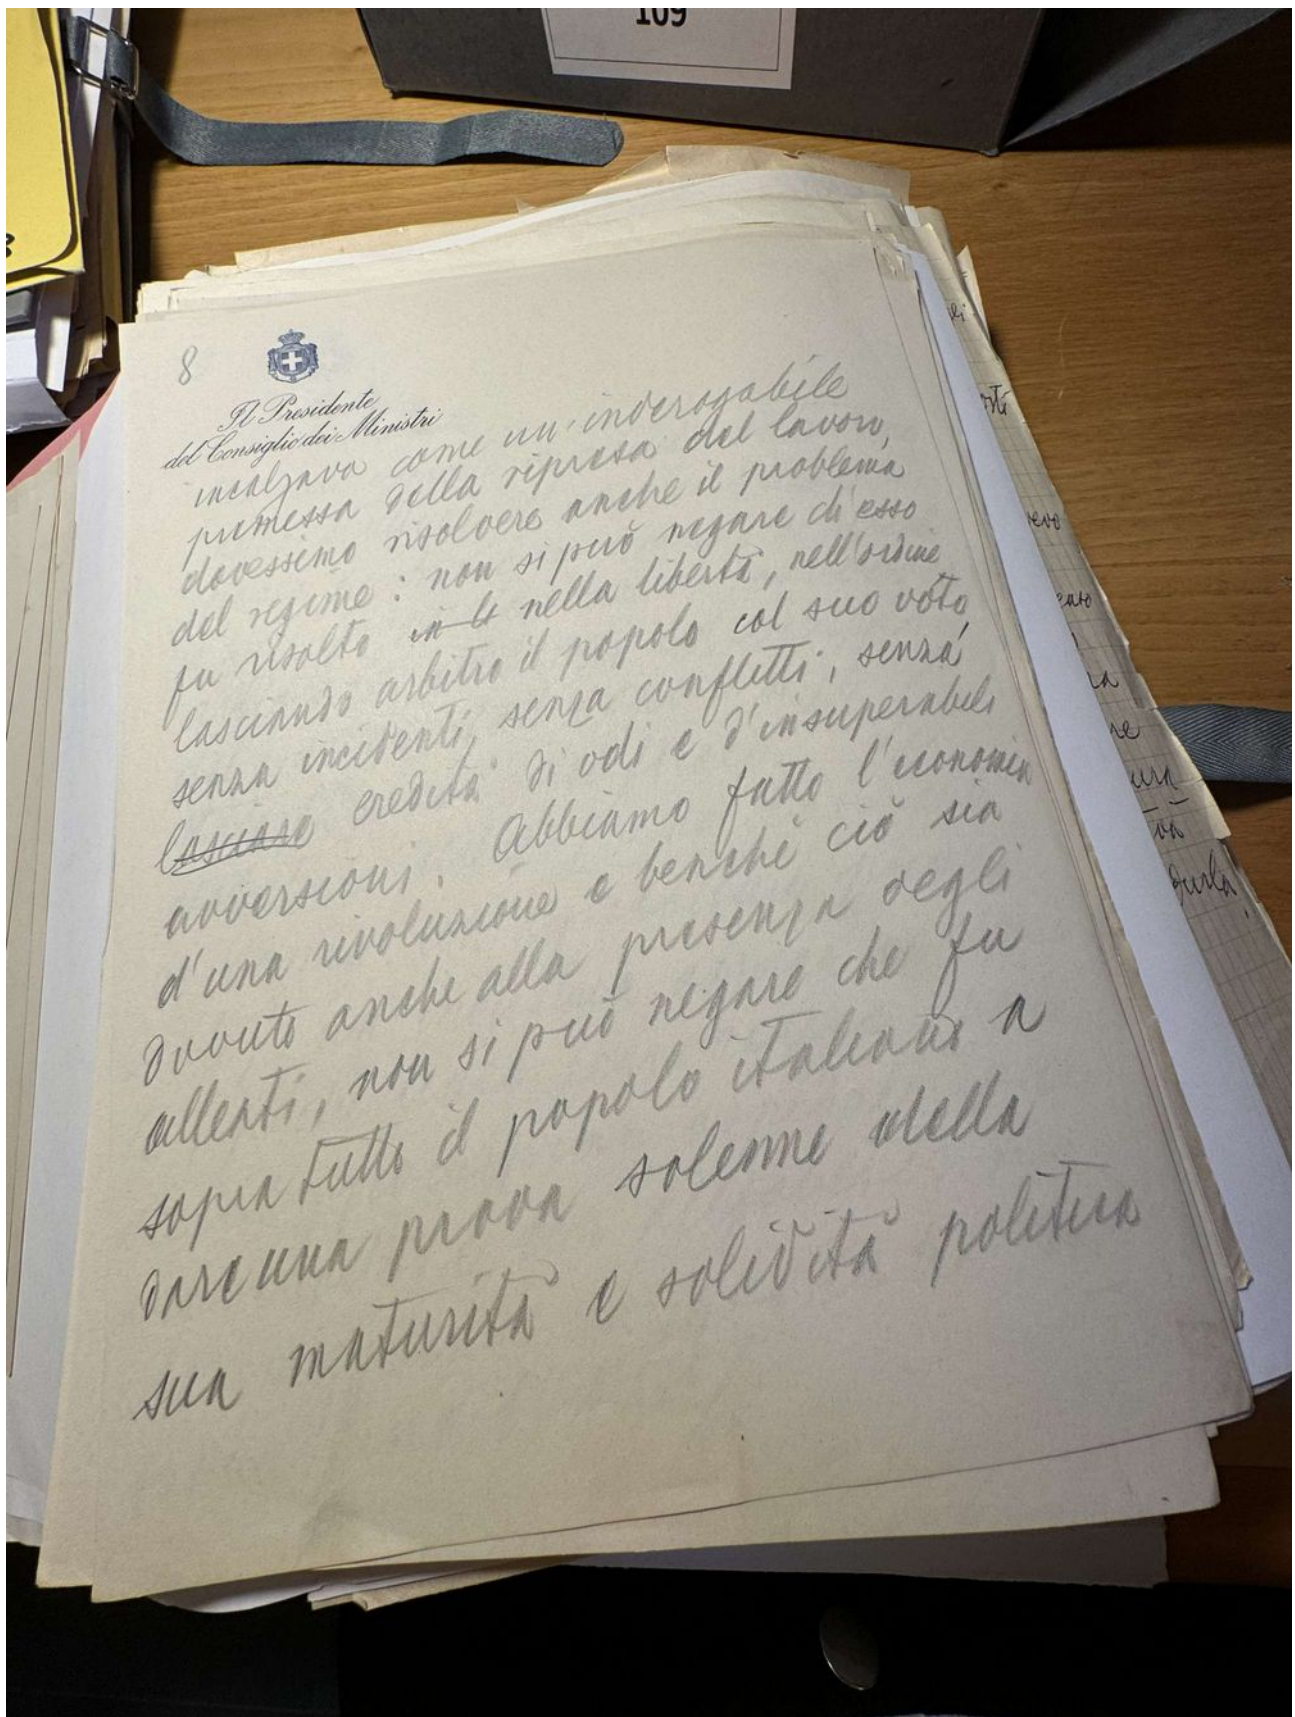 109
8
Il Presidente
del Consiglio dei Ministri
incalzava come un'inderogabile
premessa della ripresa del lavoro,
dovessimo risolvere anche il problema
del regime: non si può negare ch'esso
fu risolto in li nella libertà, nell'ordine
lasciando arbitro il popolo col suo voto,
senza incidenti, senza conflitti, senza
lasciare eredità di odi e d'insuperabili
avversioni. Abbiamo fatto l'economia
d'una rivoluzione e benchè ciò sia
dovuto anche alla presenza degli
alleati, non si può negare che fu
sopra tutto il popolo italiano a
dare una prova solenne della
sua maturità e solidità politica